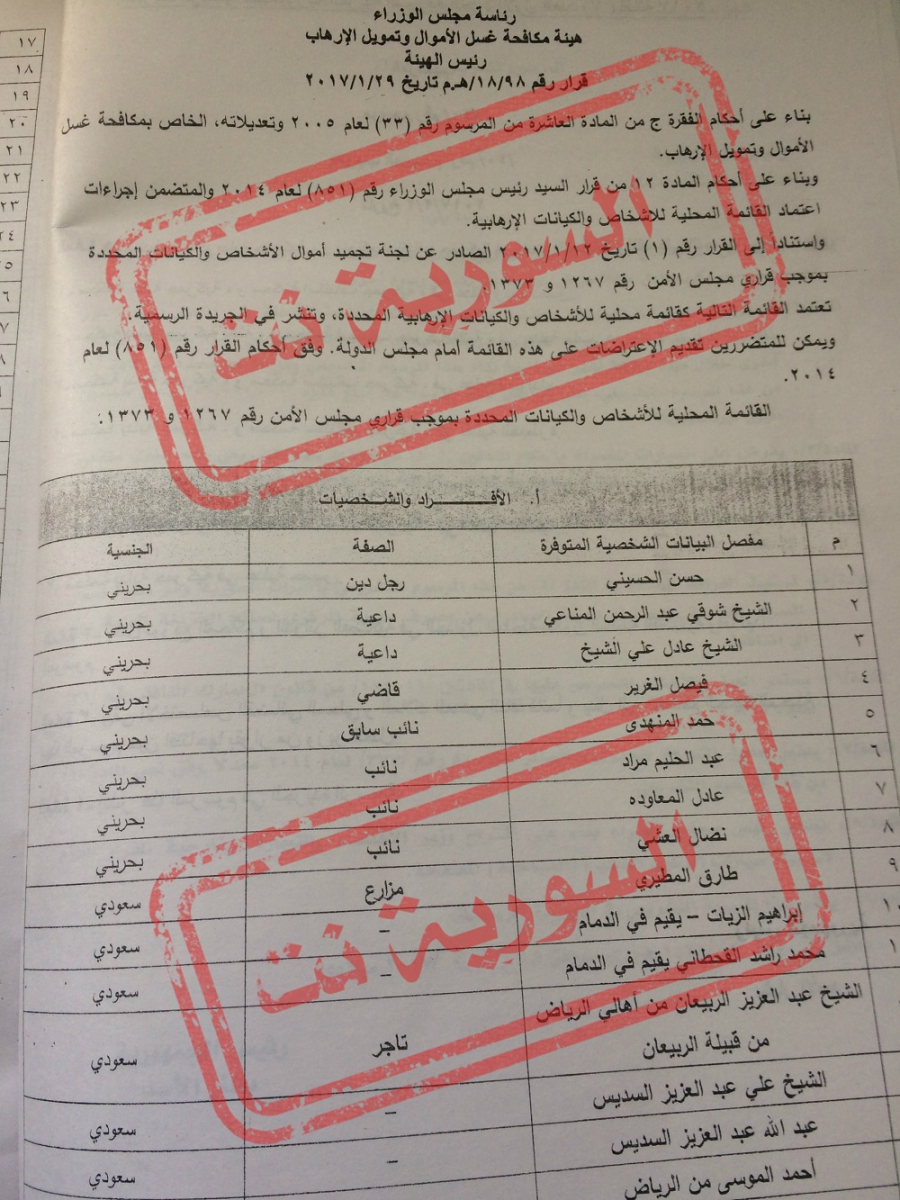 رئاسة مجلس الوزراء
هيئة مكافحة غسل الأموال وتمويل الإرهاب
رئيس الهيئة
قرار رقم ١٨/٩٨/هـ.م تاريخ ٢٠١٧/١/٢٩
بناء على أحكام الفقرة ج من المادة العاشرة من المرسوم رقم (٣٣) لعام ٢٠٠٥ وتعديلاته، الخاص بمكافحة غسل
الأموال وتمويل الإرهاب.
وبناء على أحكام المادة ١٢ من قرار السيد رئيس مجلس الوزراء رقم (٨٥١) لعام ٢٠١٤ والمتضمن إجراءات
اعتماد القائمة المحلية للأشخاص والكيانات الإرهابية.
واستنادا إلى القرار رقم (١) تاريخ ٢٠١٧/١/١٢ الصادر عن لجنة تجميد أموال الأشخاص والكيانات المحددة
بموجب قراري مجلس الأمن رقم ١٢٦٧ و ١٣٧٣.
تعتمد القائمة التالية كقائمة محلية للأشخاص والكيانات الإرهابية المحددة، وتنشر في الجريدة الرسمية،
ويمكن للمتضررين تقديم الإعتراضات على هذه القائمة أمام مجلس الدولة. وفق أحكام القرار رقم (٨٥١) لعام
٢٠١٤.
القائمة المحلية للأشخاص والكيانات المحددة بموجب قراري مجلس الأمن رقم ١٢٦٧ و ١٣٧٣:
أ. الأفـــــراد والشـخصيات
م مفصل البيانات الشخصية المتوفرة الصفة الجنسية
١ حسن الحسيني رجل دين بحريني
٢ الشيخ شوقي عبد الرحمن المناعي داعية بحريني
٣ الشيخ عادل علي الشيخ داعية بحريني
٤ فيصل الغرير قاضي بحريني
٥ حمد المنهدى نائب سابق بحريني
٦ عبد الحليم مراد نائب بحريني
٧ عادل المعاوده نائب بحريني
٨ نضال العشي نائب بحريني
٩ طارق المطيري مزارع سعودي
إبراهيم الزيات – يقيم في الدمام – سعودي
محمد راشد القحطاني يقيم في الدمام – سعودي
الشيخ عبد العزيز الربيعان من أهالي الرياض
من قبيلة الربيعان تاجر سعودي
الشيخ علي عبد العزيز السديس
عبد الله عبد العزيز السديس – سعودي
أحمد الموسى من الرياض – سعودي
السورية نت
السورية نت
١٧
١٨
١٩
٢٠
٢١
٢٢
٢٣